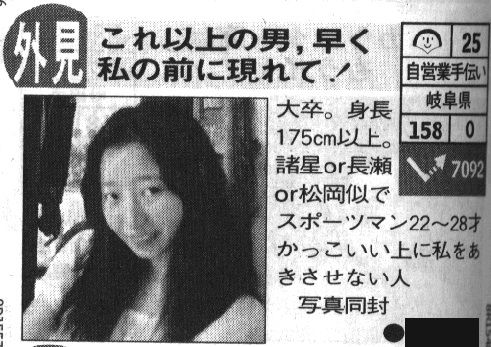 外見
これ以上の男,早く
私の前に現れて!
25
自営業手伝い
岐阜県
158 0
7092
大卒。身長
175cm以上。
諸星or長瀬
or松岡似で
スポーツマン22〜28才
かっこいい上に私をあ
きさせない人
写真同封